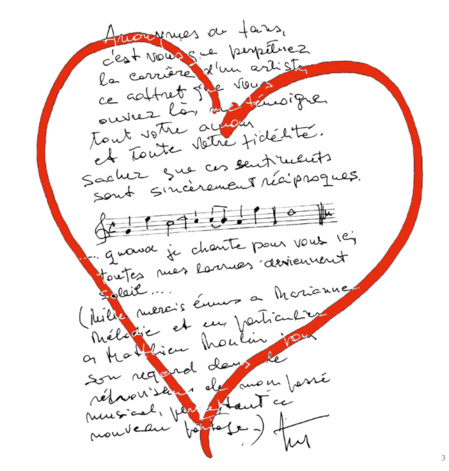 Anonymes de fans,
c'est vous que perpétuez
la carrière d'un artiste,
ce coffret que vous
ouvrez là, me témoigne
tout votre amour
et toute votre fidélité.
Sachez que ces sentiments
sont sincèrement réciproques.
..... quand je chante pour vous ici
toutes mes larmes deviennent
soleil.....
(Mille mercis émus a Marianne
Mélodie et en particulier
a Matthieu Moulin pour
son regard dans le
rétroviseur de mon passé
musical, permettant ce
nouveau partage.)
3